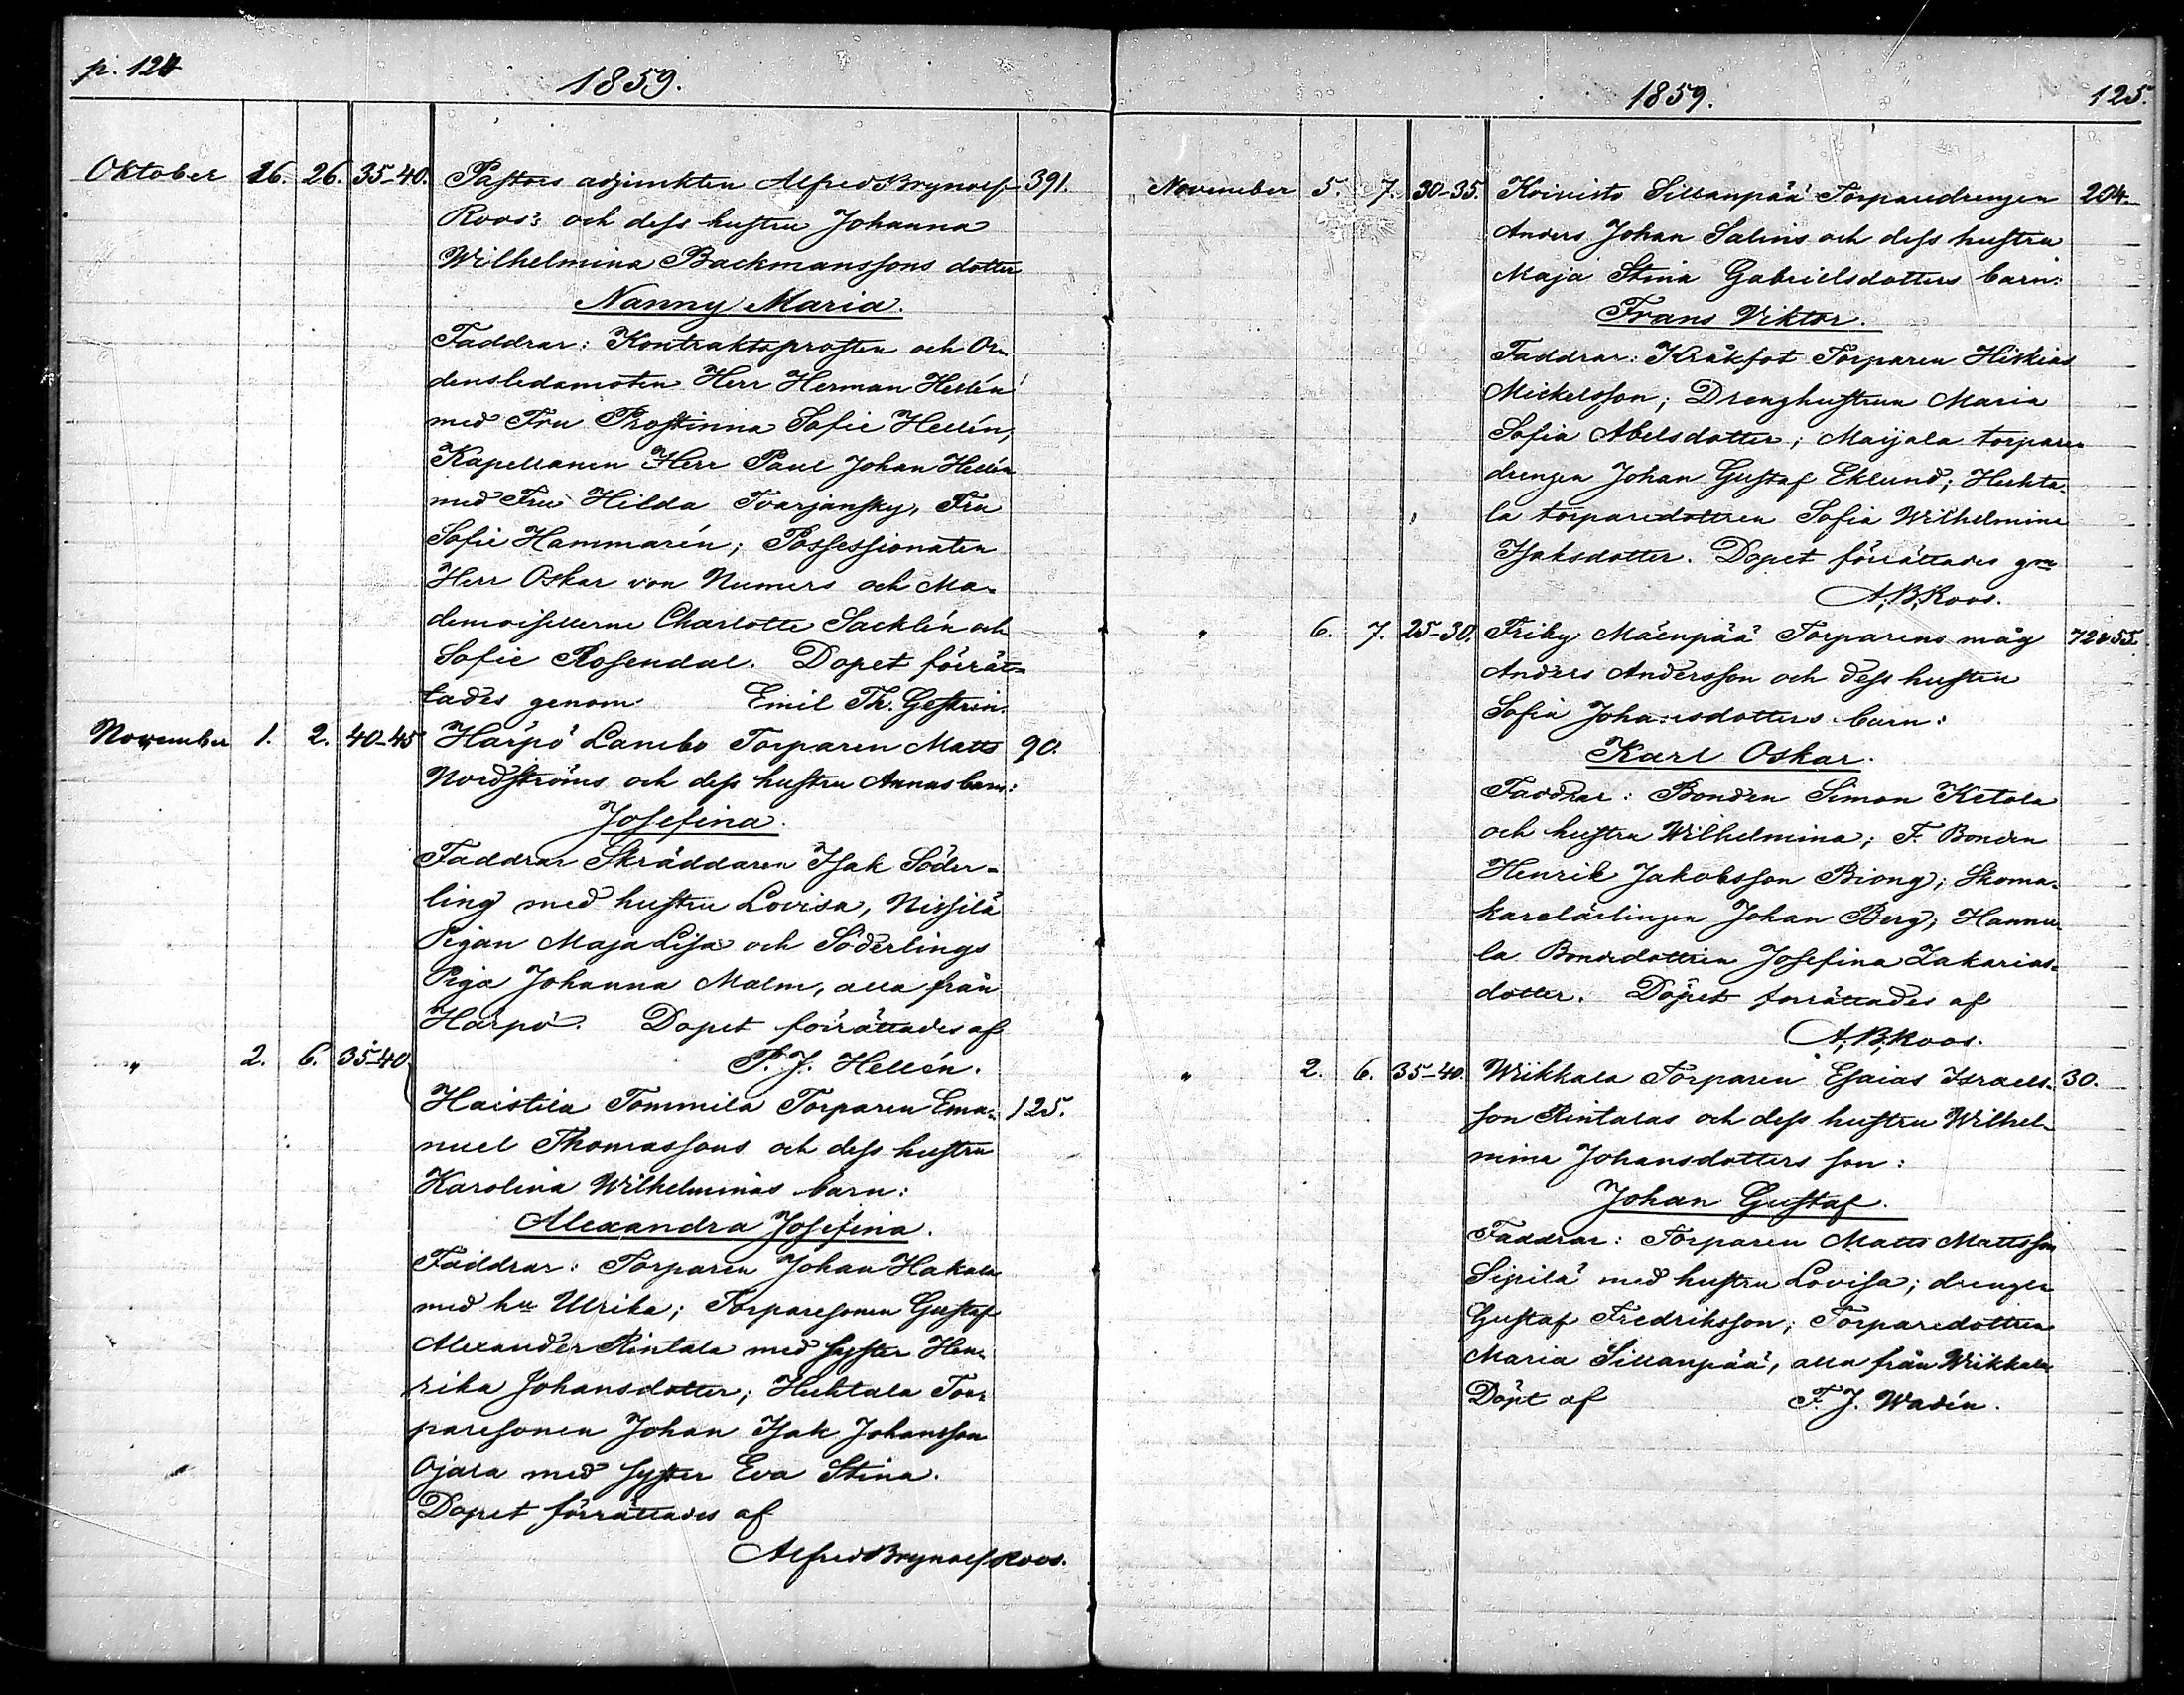 p. 124
1859.
Oktober 16. 26. 35-40. Pastors adjunkten Alfred Brynolf 391.
Roos's och dess hustru Johanna
Wilhelmina Backmanssons dotter
Nanny Maria.
Faddrar: Kontraktsprosten och Or-
densledamoten Herr Herman Hellén
med Fru Prostinna Sofie Hellén;
Kapellanen Herr Paul Johan Hellén
med Fru Hilda Tvarjansky, Fru
Sofie Hammarén; Possessionaten
Herr Oskar von Numers och Ma-
demoisellerne Charlotte Sacklén och
Sofie Rosendal. Dopet förrät-
tades genom Emil Th. Gestrin.
November 1. 2. 40-45 Härpö Lambo Torparen Matts 90.
Nordströms och dess hustru Annas barn:
Josefina.
Faddrar Skräddaren Isak Söder-
ling med hustru Lovisa, Nissilä
Pigan Maja Lisa och Söderlings
Piga Johanna Malm, alla från
Härpö. Dopet förrättades af
P. J. Hellén.
" 2. 6. 35-40
Haistila Tommila Torparen Ema- 125.
nuel Thomassons och dess hustru
Karolina Wilhelminas barn:
Alexandra Josefina.
Faddrar: Torparen Johan Hakala
med hu Ulrika; Torparesonen Gustaf
Alexander Rintala med syster Hen-
rika Johansdotter; Huhtala Tor-
paresonen Johan Isak Johansson
Ojala med syster Eva Stina.
Dopet förrättades af
Alfred Brynolf Roos.
1859. 125.
November 5. 7. 30-35. Koivisto Sillanpää Torparedrengen 204.
Anders Johan Salins och dess hustru
Maja Stina Gabrielsdotters barn:
Frans Viktor.
Faddrar: Kråkfot Torparen Hiskias
Mickelsson; Drenghustrun Maria
Sofia Abelsdotter; Maijala torpare
drengen Johan Gustaf Eklund; Huhta-
la torparedottren Sofia Wilhelmina
Isaksdotter. Dopet förrättades gm
A; B; Roos.
" 6. 7. 25-30. Friby Mäenpää Torparens måg 72&55.
Anders Andersson och dess hustru
Sofia Johansdotters barn:
Karl Oskar.
Faddrar: Bonden Simon Ketola
och hustru Wilhelmina; F. Bonden
Henrik Jakobsson Biong; Skoma-
karelärlingen Johan Berg; Hannu-
la Bondedottren Josefina Zakarias-
dotter. Döpet forrättades af
A; B; Roos.
" 2. 6. 35-40. Wiikkala Torparen Esaias Israels- 30.
son Rintalas och dess hustru Wilhel-
mina Johansdotters son:
Johan Gustaf.
Faddrar: Torparen Matts Mattsson
Sipilä med hustru Lovisa; drengen
Gustaf Fredriksson; Torparedottren
Maria Sillanpää, alla från Wiikkala
Döpt af F. J. Wadén.